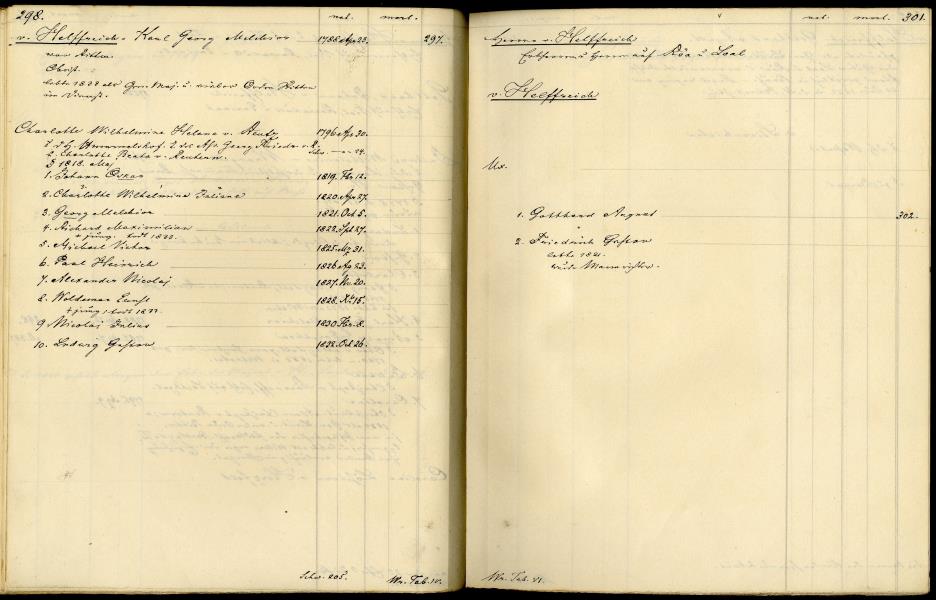 298. nat. mort.
v. Helffreich. Karl Georg Melchior 1788. Apr. 23. 297.
war Ritter.
Obrist.
lebte 1832 als Gen. Maj. u. vieler Orden Ritter
im Dienst.
Charlotte Wilhelmine Helene v. Reutz 1796 Ap. 30.
2. Charlotte Beata v. Reutern.
1818. Mai
1. Johann Oskar 1819. Fbr. 12.
2. Charlotte Wilhelmine Juliane 1820. Apr. 27.
3. Georg Melchior 1821. Oct. 5.
4. Richard Maximilian 1822. Spt. 27.
+ jung. todt 1832.
5. Michael Victor 1825. Mz. 31.
6. Paul Heinrich 1826. Ap. 23.
7. Alexander Nicolaj 1827. Nv. 20.
8. Woldemar Ernst 1828. Xbr. 15.
+ jung, todt 1832.
9. Nicolaj Julius 1830. Fbr. 8.
10. Ludwig Gustav 1832. Oct. 26.
Schw. 205. Wr. Tab. IV.
nat. mort. 301.
Herren v. Helffreich
Erbherren u. Herren auf Röa u. Loal
v. Helffreich
Ux.
1. Gotthard August 302.
2. Friedrich Gustav
lebte 1821.
Wr. Tab. VI.